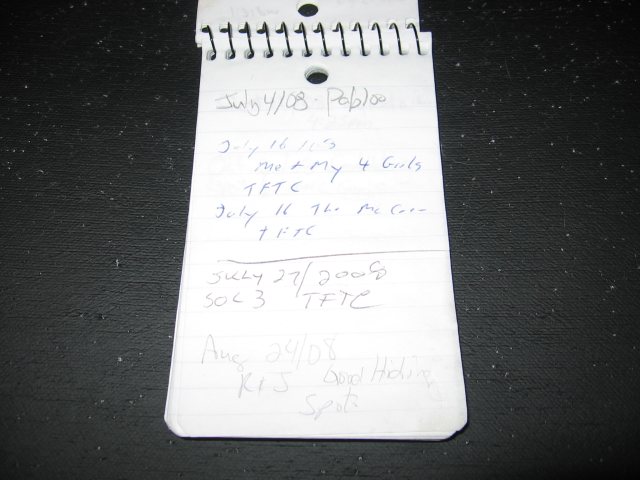 July 4/08 - Pabloo
July 16 It's
Me + My 4 Girls
TFTC
July 16 The
TFTC
JULY 27/2008
SOL 3 TFTC
Aug 24/08
R+J Good Hiding
Spot